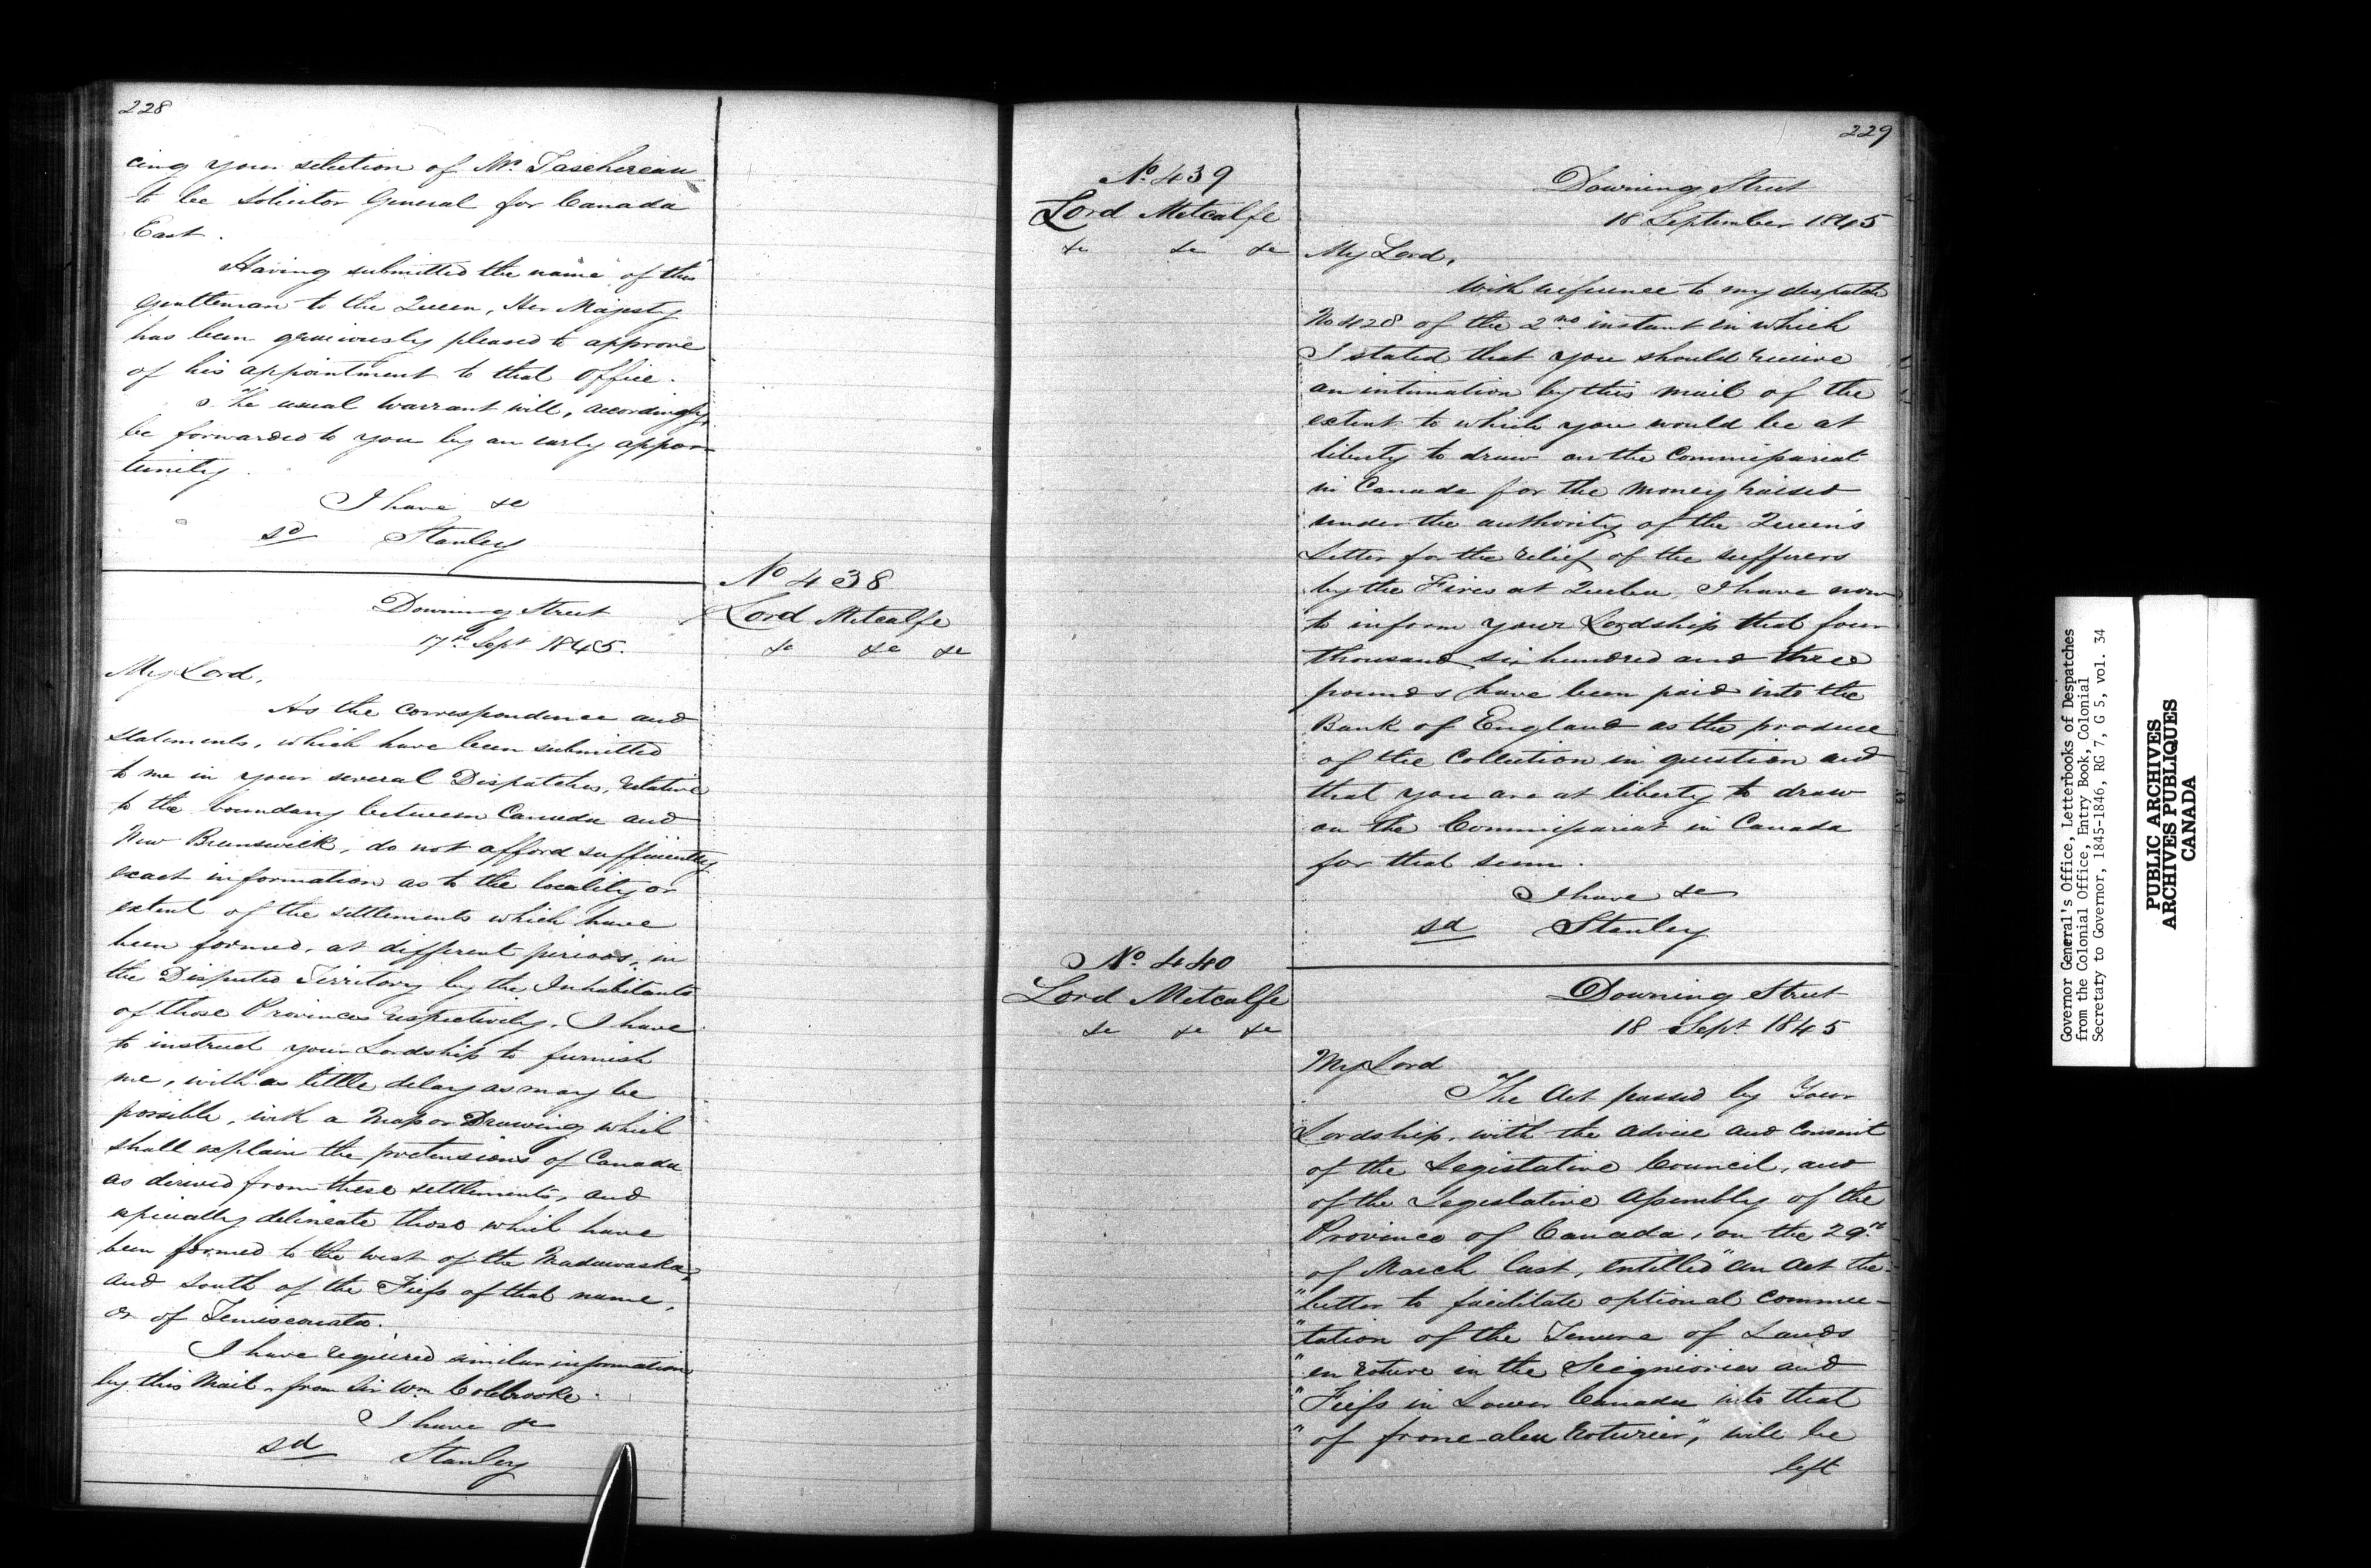 228
cing your selection of Mr. Taschereau
to be Solicitor General for Canada
East.
Having submitted the name of this
Gentleman to the Queen, Her Majesty
has been graciously pleased to approve
of his appointment to that Office.
The usual Warrant will, accordingly,
be forwarded to you by an early oppor
tunity.
I have &c
sd Stanley
No 438
Lord Metcalfe
&c &c &c
Downing Street
17th Sept 1845.
My Lord,
As the correspondence and
statements, which have been submitted
to me in your several Dispatches, relative
to the boundary between Canada and
New Brunswick, do not afford sufficiently
exact information as to the locality or
extent of the settlements which have
been formed, at different periods, in
the Disputed Territory by the Inhabitants
of those Provinces respectively, I have
to instruct your Lordship to furnish
me, with as little delay as may be
possible, with a Map or Drawing which
shall explain the pretensions of Canada
as derived from these settlements, and
especially delineate those which have
been formed to the West of the Madawaska,
and South of the Fiefs of that name,
or of Temiscouata.
I have required similar information
by this Mail, from Sir Wm Colebrooke.
I have &c
sd Stanley
229
No 439
Lord Metcalfe
&c &c &c
Downing Street
18 September 1845
My Lord,
With reference to my despatch
No 428 of the 2nd instant in which
I stated that you should receive
an intimation by this mail of the
extent to which you would be at
liberty to draw on the Commissariat
in Canada for the Money raised
under the authority of the Queen's
Letter for the relief of the sufferers
by the Fires at Quebec, I have now
to inform your Lordship that four
thousand six hundred and three
pounds have been paid into the
Bank of England as the produce
of the Collection in question and
that you are at liberty to draw
on the Commissariat in Canada
for that sum.
I have &c
sd Stanley
No 440
Lord Metcalfe
&c &c &c
Downing Street
18 Sept 1845
My Lord
The Act passed by Your
Lordship, with the advice and Consent
of the Legislative Council, and
of the Legislative Assembly of the
Province of Canada, on the 29th
of March last, entitled "An Act the
"better to facilitate optional Commu-
"tation of the Tenure of Lands
"en roture in the Seigniories and
"Fiefs in Lower Canada into that
"of franc-aleu Roturier", will be
left
Governor General's Office, Letterbooks of Despatches
from the Colonial Office, Entry Book, Colonial
Secretary to Governor, 1845-1846, RG 7, G 5, vol. 34
PUBLIC ARCHIVES
ARCHIVES PUBLIQUES
CANADA